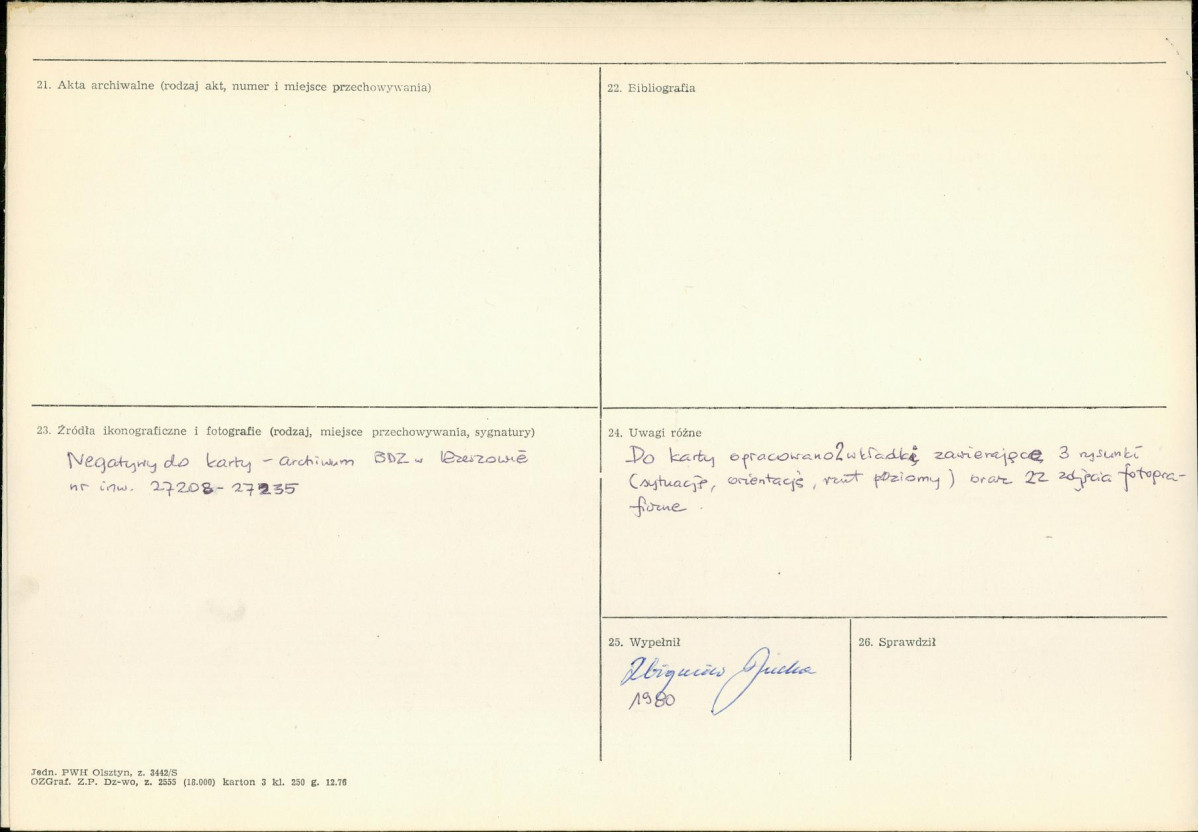 21. Akta archiwalne (rodzaj akt, numer i miejsce przechowywania)
22. Bibliografia
23. Źródła ikonograficzne i fotografie (rodzaj, miejsce przechowywania, sygnatury)
Negatywy do karty – archiwum BDZ w Rzeszowie
nr inw. 27208 – 27235
24. Uwagi różne
Do karty opracowano 2 wkładki zawierające 3 rysunki
(sytuację, orientację, rzut poziomy) oraz 22 zdjęcia fotogra-
ficzne.
25. Wypełnił
Zbigniew
1980
26. Sprawdził
Jedn. PWH Olsztyn, z. 3442/S
OZGraf. Z.P. Dz-wo, z. 2555 (18.000) karton 3 kl. 250 g. 12.76